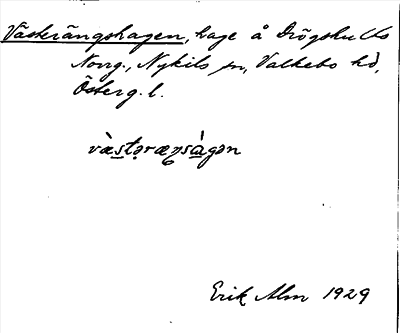 Västerängshagen, hage å Drögshults
Norrg., Nykils sn, Valkebo hd,
Österg. l.
vàstəræŋsàgən
Erik Alm 1929